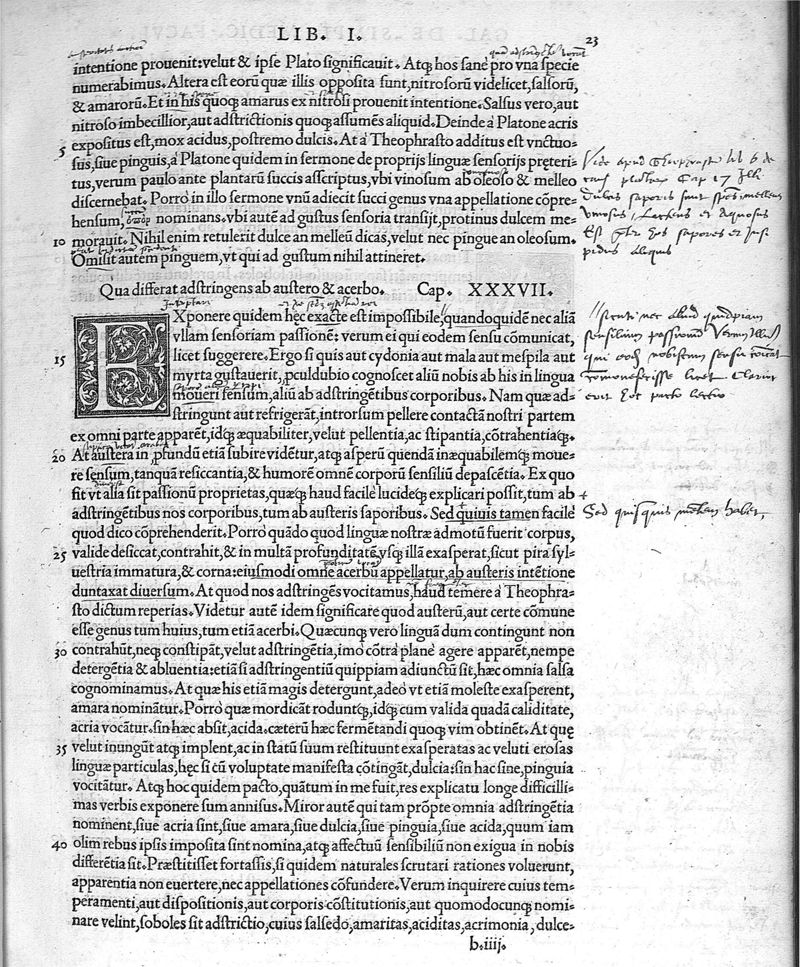 LIB. I.
23
intentione prouenit: velut & ipse Plato significauit. Atq; hos sanè pro vna specie
numerabimus. Altera est eorũ quæ illis opposita sunt, nitrosorũ videlicet, salsorũ,
& amarorũ. Et in his quoq; amarus ex nitrosi prouenit intentione. Salsus vero, aut
nitroso imbecillior, aut adstrictionis quoq; assumẽs aliquid. Deinde à Platone acris
expositus est, mox acidus, postremo dulcis. At à Theophrasto additus est vnctuo=
5 sus, siue pinguis, à Platone quidem in sermone de proprijs linguæ sensorijs prętèri=
tus, verum paulo ante plantarũ succis asscriptus, vbi vinosum ab oleoso & melleo
discernebat. Porrò in illo sermone vnũ adiecit succi genus vna appellatione cõpre=
hensum, nominans. vbi autẽ ad gustus sensoria transijt, protinus dulcem me=
10 morauit. Nihil enim retulerit dulce an melleũ dicas, velut nec pingue an oleosum.
Omisit autem pinguem, vt qui ad gustum nihil attineret.
Qua differat adstringens ab austero & acerbo. Cap. XXXVII.
EXponere quidem hęc exacte est impossibile, quandoquidẽ nec aliã
vllam sensoriam passionẽ: verum ei qui eodem sensu cõmunicat,
15 licet suggerere. Ergo si quis aut cydonia aut mala aut mespila aut
myrta gustauerit, ꝓculdubio cognoscet aliũ nobis ab his in lingua
moueri sensum, aliũ ab adstringẽtibus corporibus. Nam quæ ad=
stringunt aut refrigerãt, introrsum pellere contactã nostri partem
ex omni parte apparẽt, idq; æquabiliter, velut pellentia, ac stipantia, cõtrahentiaq;.
20 At austera in ꝓfundũ etiã subire vidẽtur, atq; asperũ quendã inæquabilemq; moue=
re sensum, tanquã resiccantia, & humorẽ omnẽ corporũ sensiliũ depascẽtia. Ex quo
fit vt alia sit passionũ proprietas, quæq; haud facile lucideq; explicari possit, tum ab
adstringẽtibus nos corporibus, tum ab austeris saporibus. Sed quiuis tamen facile
quod dico cõprehenderit. Porrò quãdo quod linguæ nostræ admotũ fuerit corpus,
25 valide desiccat, contrahit, & in multã profunditatẽ vsq; illã exasperat, sicut pira syl=
uestria immatura, & corna: eiusmodi omne acerbũ appellatur, ab austeris intẽtione
duntaxat diuersum. At quod nos adstringẽs vocitamus, haud temere à Theophra=
sto dictum reperias. Videtur autẽ idem significare quod austerũ, aut certe cõmune
esse genus tum huius, tum etiã acerbi. Quæcunq; vero linguã dum contingunt non
30 contrahũt, neq; constipãt, velut adstringẽtia, imò cõtrà planè agere apparẽt, nempe
detergẽtia & abluentia: etiã si adstringentiũ quippiam adiunctũ sit, hæc omnia salsa
cognominamus. At quæ his etiã magis detergunt, adeò vt etiã moleste exasperent,
amara nominãtur. Porrò quæ mordicãt roduntq;, idq; cum valida quadã caliditate,
acria vocãtur. sin hæc absit, acida. cæterũ hæc fermẽtandi quoq; vim obtinẽt. At quę
35 velut inungũt atq; implent, ac in statũ suum restituunt exasperatas ac veluti erosas
linguæ particulas, hęc si cũ voluptate manifesta cõtingãt, dulcia: sin hac sine, pinguia
vocitãtur. Atq; hoc quidem pacto, quãtum in me fuit, res explicatu longe difficilli=
mas verbis exponere sum annisus. Miror autẽ qui tam prõpte omnia adstringẽtia
nominent, siue acria sint, siue amara, siue dulcia, siue pinguia, siue acida, quum iam
40 olim rebus ipsis imposita sint nomina, atq; affectuũ sensibiliũ non exigua in nobis
differẽtia sit. Præstitisset fortassis, si quidem naturales scrutari rationes voluerunt,
apparentia non euertere, nec appellationes cõfundere. Verum inquirere cuius tem=
peramenti, aut dispositionis, aut corporis cõstitutionis, aut quomodocunq; nomi=
nare velint, soboles sit adstrictio, cuius salsedo, amaritas, aciditas, acrimonia, dulce=
b.iiij.
Sed quisquis habet,